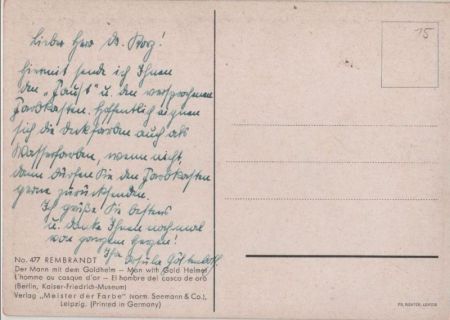 Lieber Herr Dr. Borz!
Hiermit sende ich Ihnen
den „Faust“ u. den versprochenen
Farbkasten. Hoffentlich eignen
sich die Deckfarben auch als
Wasserfarben, wenn nicht,
dann dürfen Sie den Farbkasten
gerne zurücksenden.
Ich grüße Sie bestens
u. danke Ihnen nochmal
von ganzem Herzen!
Ihre Ursula
No. 477 REMBRANDT
Der Mann mit dem Goldhelm — Man with Gold Helmet
L'homme au casque d'or — El hombre del casco de oro
(Berlin, Kaiser-Friedrich-Museum)
Verlag „Meister der Farbe“ (vorm. Seemann & Co.),
Leipzig. (Printed in Germany)
15
FR. RICHTER, LEIPZIG